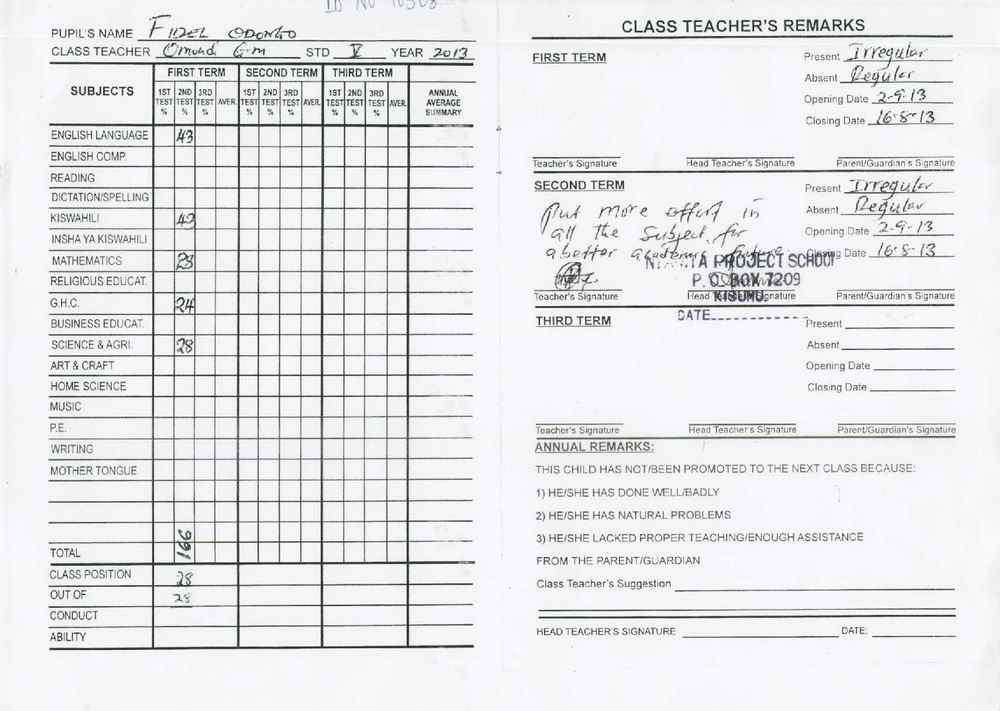 PUPIL'S NAME FIDEL ODONGO
CLASS TEACHER Omundi G.m STD V YEAR 2013
SUBJECTS FIRST TERM SECOND TERM THIRD TERM
1ST TEST % 2ND TEST % 3RD TEST % AVER. 1ST TEST % 2ND TEST % 3RD TEST % AVER. 1ST TEST % 2ND TEST % 3RD TEST % AVER. ANNUAL AVERAGE SUMMARY
ENGLISH LANGUAGE 43
ENGLISH COMP.
READING
DICTATION/SPELLING
KISWAHILI
INSHA YA KISWAHILI
MATHEMATICS 23
RELIGIOUS EDUCAT.
G.H.C. 24
BUSINESS EDUCAT.
SCIENCE & AGRI. 28
ART & CRAFT
HOME SCIENCE
MUSIC
P.E.
WRITING
MOTHER TONGUE
TOTAL 166
CLASS POSITION 28
OUT OF 28
CONDUCT
ABILITY
CLASS TEACHER'S REMARKS
FIRST TERM
Present Irregular
Absent Regular
Opening Date 2-9-13
Closing Date 16-8-13
Teacher's Signature Head Teacher's Signature Parent/Guardian's Signature
SECOND TERM
Present Irregular
Absent Regular
Opening Date 2-9-13
Closing Date 16-8-13
Put more effort in
all the Subject for
a better academic future
PROJECT SCHOOL
P. O. BOX 7209
KISUMU
DATE
Teacher's Signature Head Teacher's Signature Parent/Guardian's Signature
THIRD TERM
Present
Absent
Opening Date
Closing Date
Teacher's Signature Head Teacher's Signature Parent/Guardian's Signature
ANNUAL REMARKS:
THIS CHILD HAS NOT/BEEN PROMOTED TO THE NEXT CLASS BECAUSE:
1) HE/SHE HAS DONE WELL/BADLY
2) HE/SHE HAS NATURAL PROBLEMS
3) HE/SHE LACKED PROPER TEACHING/ENOUGH ASSISTANCE
FROM THE PARENT/GUARDIAN
Class Teacher's Suggestion
HEAD TEACHER'S SIGNATURE DATE: